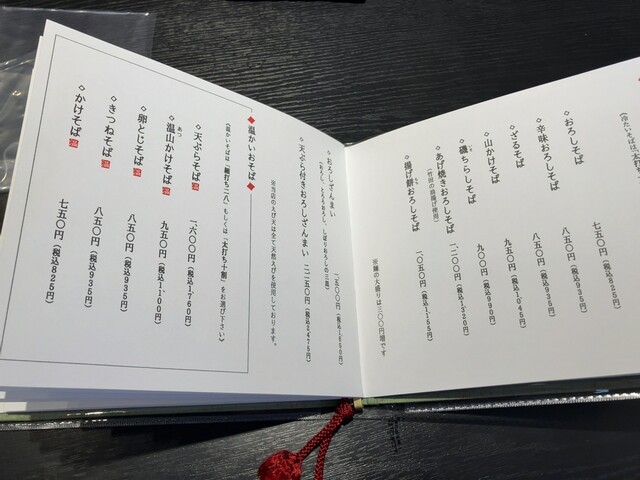 おろしそば 七五〇円（税込825円）
辛味おろしそば 八五〇円（税込935円）
ざるそば 八五〇円（税込935円）
山かけそば 九五〇円（税込1,045円）
磯ちらしそば 九〇〇円（税込990円）
あげ焼きおろしそば 一二〇〇円（税込1,320円）
（竹田の油揚げ使用）
揚げ餅おろしそば 一〇五〇円（税込1,155円）
※麺の大盛りは三〇〇円増です
おろしざんまい 一五〇〇円（税込1,650円）
天ぷら付きおろしざんまい 二二五〇円（税込2,475円）
※当店のえび天は全て天然えびを使用しております。
温かいおそば
《温かいそばは「細打ち二八」もしくは「太打ち十割」をお選び下さい》
天ぷらそば 温 一六〇〇円（税込1,760円）
温山かけそば 温 九五〇円（税込1100円）
卵とじそば 温 八五〇円（税込935円）
きつねそば 温 八五〇円（税込935円）
かけそば 温 七五〇円（税込825円）